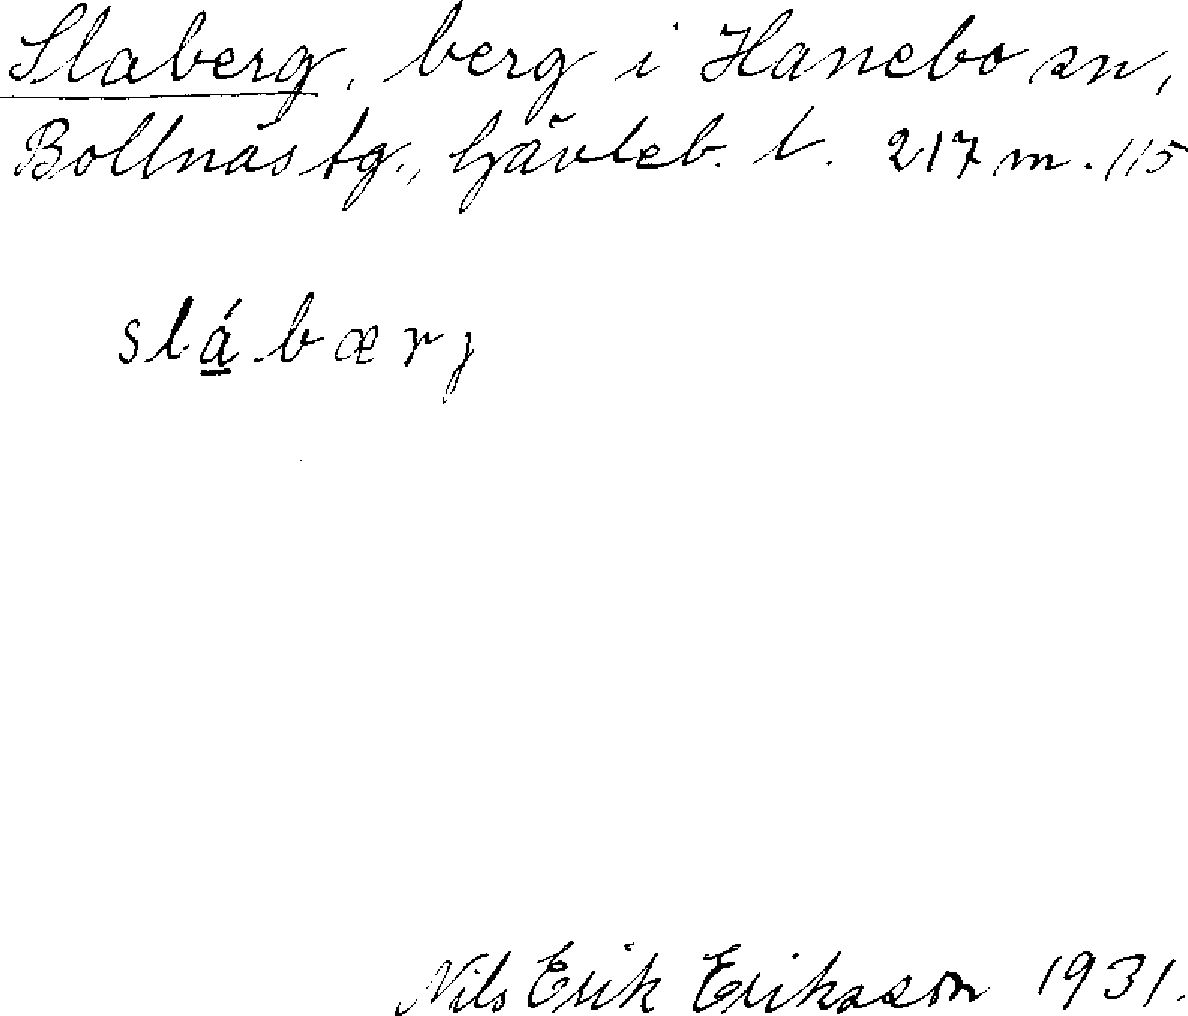 Slaberg, berg i Hanebo sn,
Bollnäs tg., Gävleb. l. 217 m. 115
slá.bærj
Nils Erik Eriksson 1931.